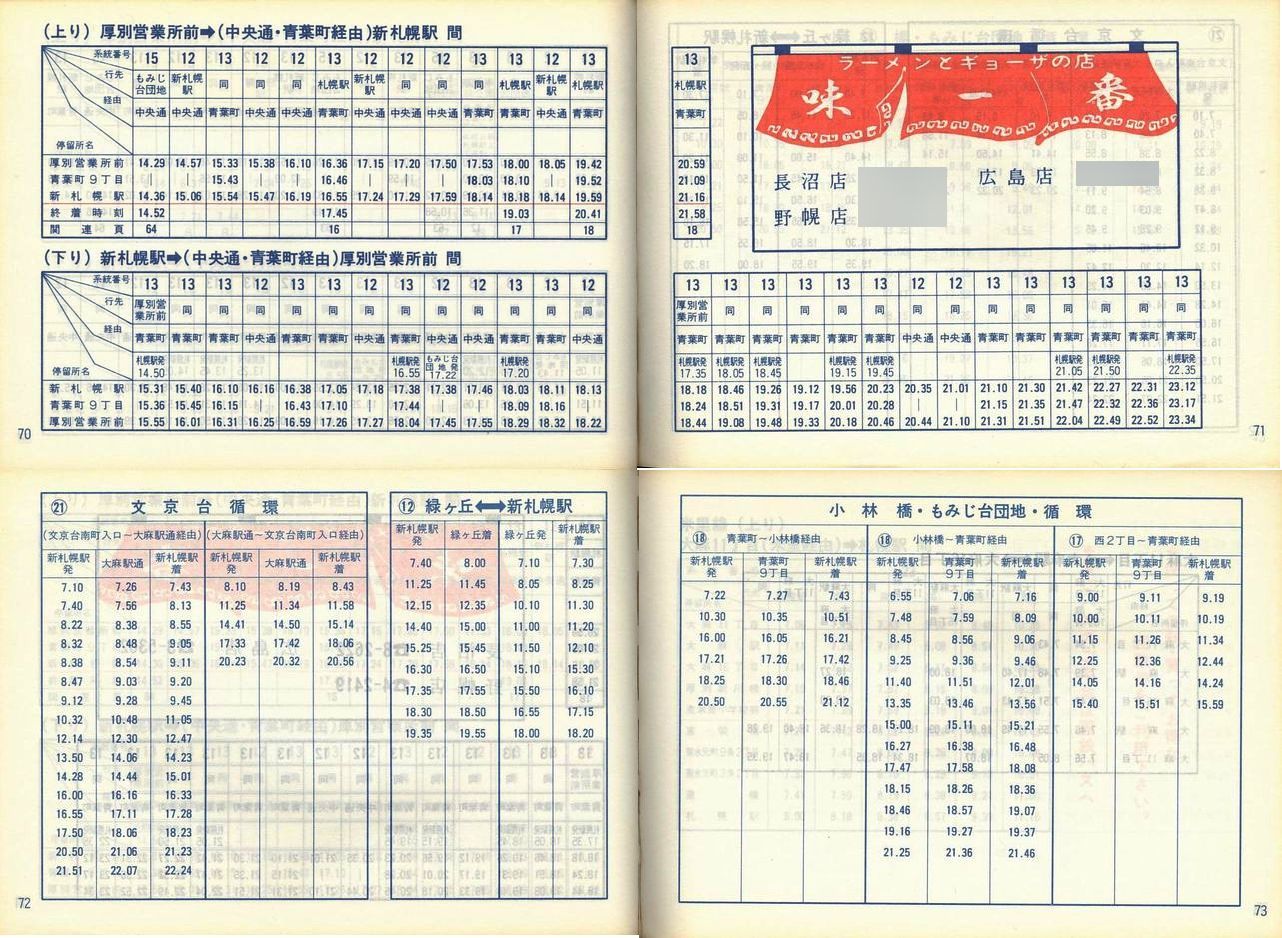 (上り) 厚別営業所前➡(中央通・青葉町経由)新札幌駅 間
系統番号 15 12 13 12 12 13 12 12 12 13 13 12 13
行先 もみじ台団地 新札幌駅 同 同 同 札幌駅 新札幌駅 同 同 同 札幌駅 新札幌駅 札幌駅
経由 中央通 中央通 青葉町 中央通 中央通 青葉町 中央通 中央通 中央通 青葉町 青葉町 中央通 青葉町
停留所名
厚別営業所前 14.29 14.57 15.33 15.38 16.10 16.36 17.15 17.20 17.50 17.53 18.00 18.05 19.42
青葉町9丁目 | | 15.43 | | 16.46 | | | 18.03 18.10 | 19.52
新札幌駅 14.36 15.06 15.54 15.47 16.19 16.55 17.24 17.29 17.59 18.14 18.18 18.14 19.59
終着時刻 14.52 17.45 19.03 20.41
関連頁 64 16 17 18
(下り) 新札幌駅➡(中央通・青葉町経由)厚別営業所前 間
系統番号 13 13 13 12 13 13 12 13 12 12 13 13 12
行先 厚別営業所前 同 同 同 同 同 同 同 同 同 同 同 同
経由 青葉町 青葉町 青葉町 中央通 青葉町 青葉町 中央通 青葉町 中央通 中央通 青葉町 青葉町 中央通
停留所名 札幌駅発 14.50 札幌駅発 16.55 もみじ台団地発 17.22 札幌駅発 17.20
新札幌駅 15.31 15.40 16.10 16.16 16.38 17.05 17.18 17.38 17.38 17.46 18.03 18.11 18.13
青葉町9丁目 15.36 15.45 16.15 | 16.43 17.10 | 17.44 | | 18.09 18.16 |
厚別営業所前 15.55 16.01 16.31 16.25 16.59 17.26 17.27 18.04 17.45 17.55 18.29 18.32 18.22
70
13
札幌駅
青葉町
20.59
21.09
21.16
21.58
18
ラーメンとギョーザの店
味一番
長沼店
広島店
野幌店
13 13 13 13 13 13 12 12 13 13 13 13 13 13
厚別営業所前 同 同 同 同 同 同 同 同 同 同 同 同 同
青葉町 青葉町 青葉町 青葉町 青葉町 青葉町 中央通 中央通 青葉町 青葉町 青葉町 青葉町 青葉町 青葉町
札幌駅発 17.35 札幌駅発 18.05 札幌駅発 18.45 札幌駅発 19.15 札幌駅発 19.45 札幌駅発 21.05 札幌駅発 21.50 札幌駅発 22.35
18.18 18.46 19.26 19.12 19.56 20.23 20.35 21.01 21.10 21.30 21.42 22.27 22.31 23.12
18.24 18.51 19.31 19.17 20.01 20.28 | | 21.15 21.35 21.47 22.32 22.36 23.17
18.44 19.08 19.48 19.33 20.18 20.46 20.44 21.10 21.31 21.51 22.04 22.49 22.52 23.34
71
㉑ 文京台循環
(文京台南町入口~大麻駅通経由) (大麻駅通~文京台南町入口経由)
新札幌駅発 大麻駅通 新札幌駅着 新札幌駅発 大麻駅通 新札幌駅着
7.10 7.26 7.43 8.10 8.19 8.43
7.40 7.56 8.13 11.25 11.34 11.58
8.22 8.38 8.55 14.41 14.50 15.14
8.32 8.48 9.05 17.33 17.42 18.06
8.38 8.54 9.11 20.23 20.32 20.56
8.47 9.03 9.20
9.12 9.28 9.45
10.32 10.48 11.05
12.14 12.30 12.47
13.50 14.06 14.23
14.28 14.44 15.01
16.00 16.16 16.33
16.55 17.11 17.28
17.50 18.06 18.23
20.50 21.06 21.23
21.51 22.07 22.24
⑫ 緑ヶ丘⟷新札幌駅
新札幌駅発 緑ヶ丘着 緑ヶ丘発 新札幌駅着
7.40 8.00 7.10 7.30
11.25 11.45 8.05 8.25
12.15 12.35 10.10 11.30
14.40 15.00 11.00 11.20
15.25 15.45 11.50 12.10
16.30 16.50 15.10 15.30
17.35 17.55 15.50 16.10
18.30 18.50 16.55 17.15
19.35 19.55 18.00 18.20
72
小林橋・もみじ台団地・循環
⑱ 青葉町~小林橋経由 ⑱ 小林橋~青葉町経由 ⑰ 西2丁目~青葉町経由
新札幌駅発 青葉町9丁目 新札幌駅着 新札幌駅発 青葉町9丁目 新札幌駅着 新札幌駅発 青葉町9丁目 新札幌駅着
7.22 7.27 7.43 6.55 7.06 7.16 9.00 9.11 9.19
10.30 10.35 10.51 7.48 7.59 8.09 10.00 10.11 10.19
16.00 16.05 16.21 8.45 8.56 9.06 11.15 11.26 11.34
17.21 17.26 17.42 9.25 9.36 9.46 12.25 12.36 12.44
18.25 18.30 18.46 11.40 11.51 12.01 14.05 14.16 14.24
20.50 20.55 21.12 13.35 13.46 13.56 15.40 15.51 15.59
15.00 15.11 15.21
16.27 16.38 16.48
17.47 17.58 18.08
18.15 18.26 18.36
18.46 18.57 19.07
19.16 19.27 19.37
21.25 21.36 21.46
73